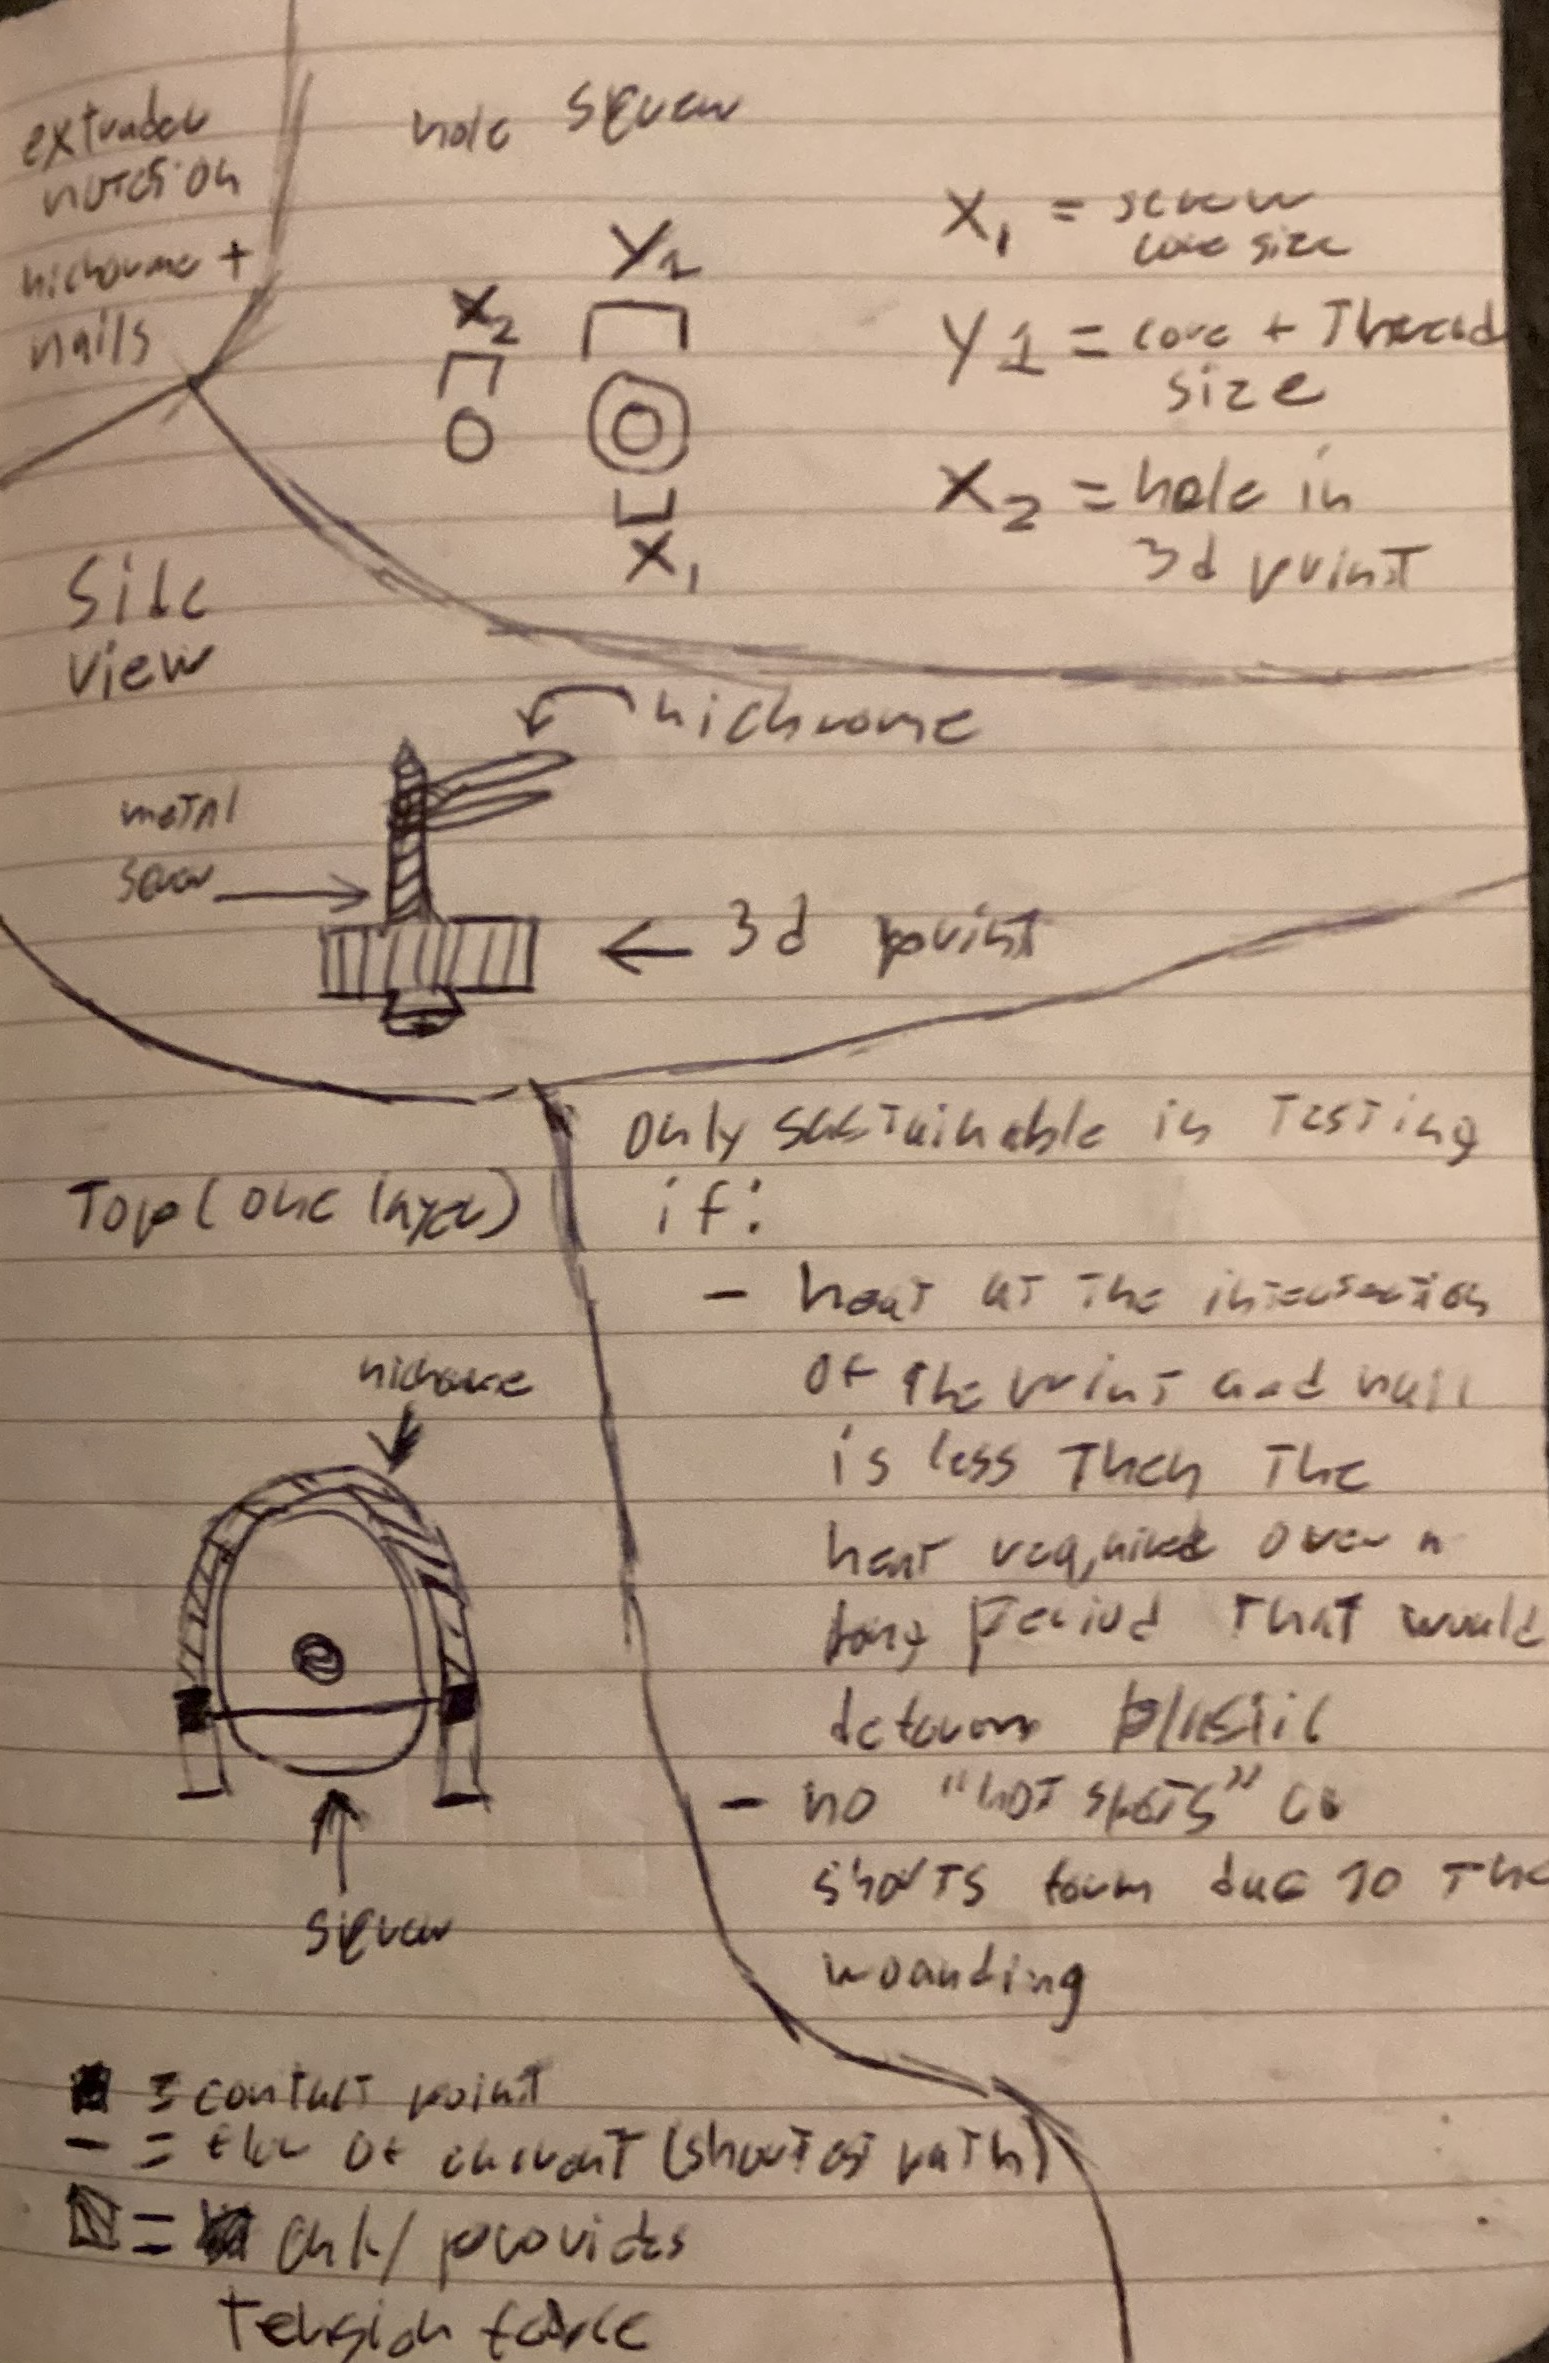 extruder
nicholume +
nails
hole screw
X₂
Y1
X₁
X₁ = screw
core size
Y1 = core + Thread
size
X₂ = hole in
3d print
Side
view
nichrome
metal
screw
3d print
Top (one layer)
nichrome
screw
only sustainable in testing
if:
- heat at the intersection
of the print and nail
is less then the
heat required over a
long period that would
deform plastic
- no "hot spots" or
shorts form due to the
woanding
= contact point
- = flow of current (shortest path)
= only provides
Tension force